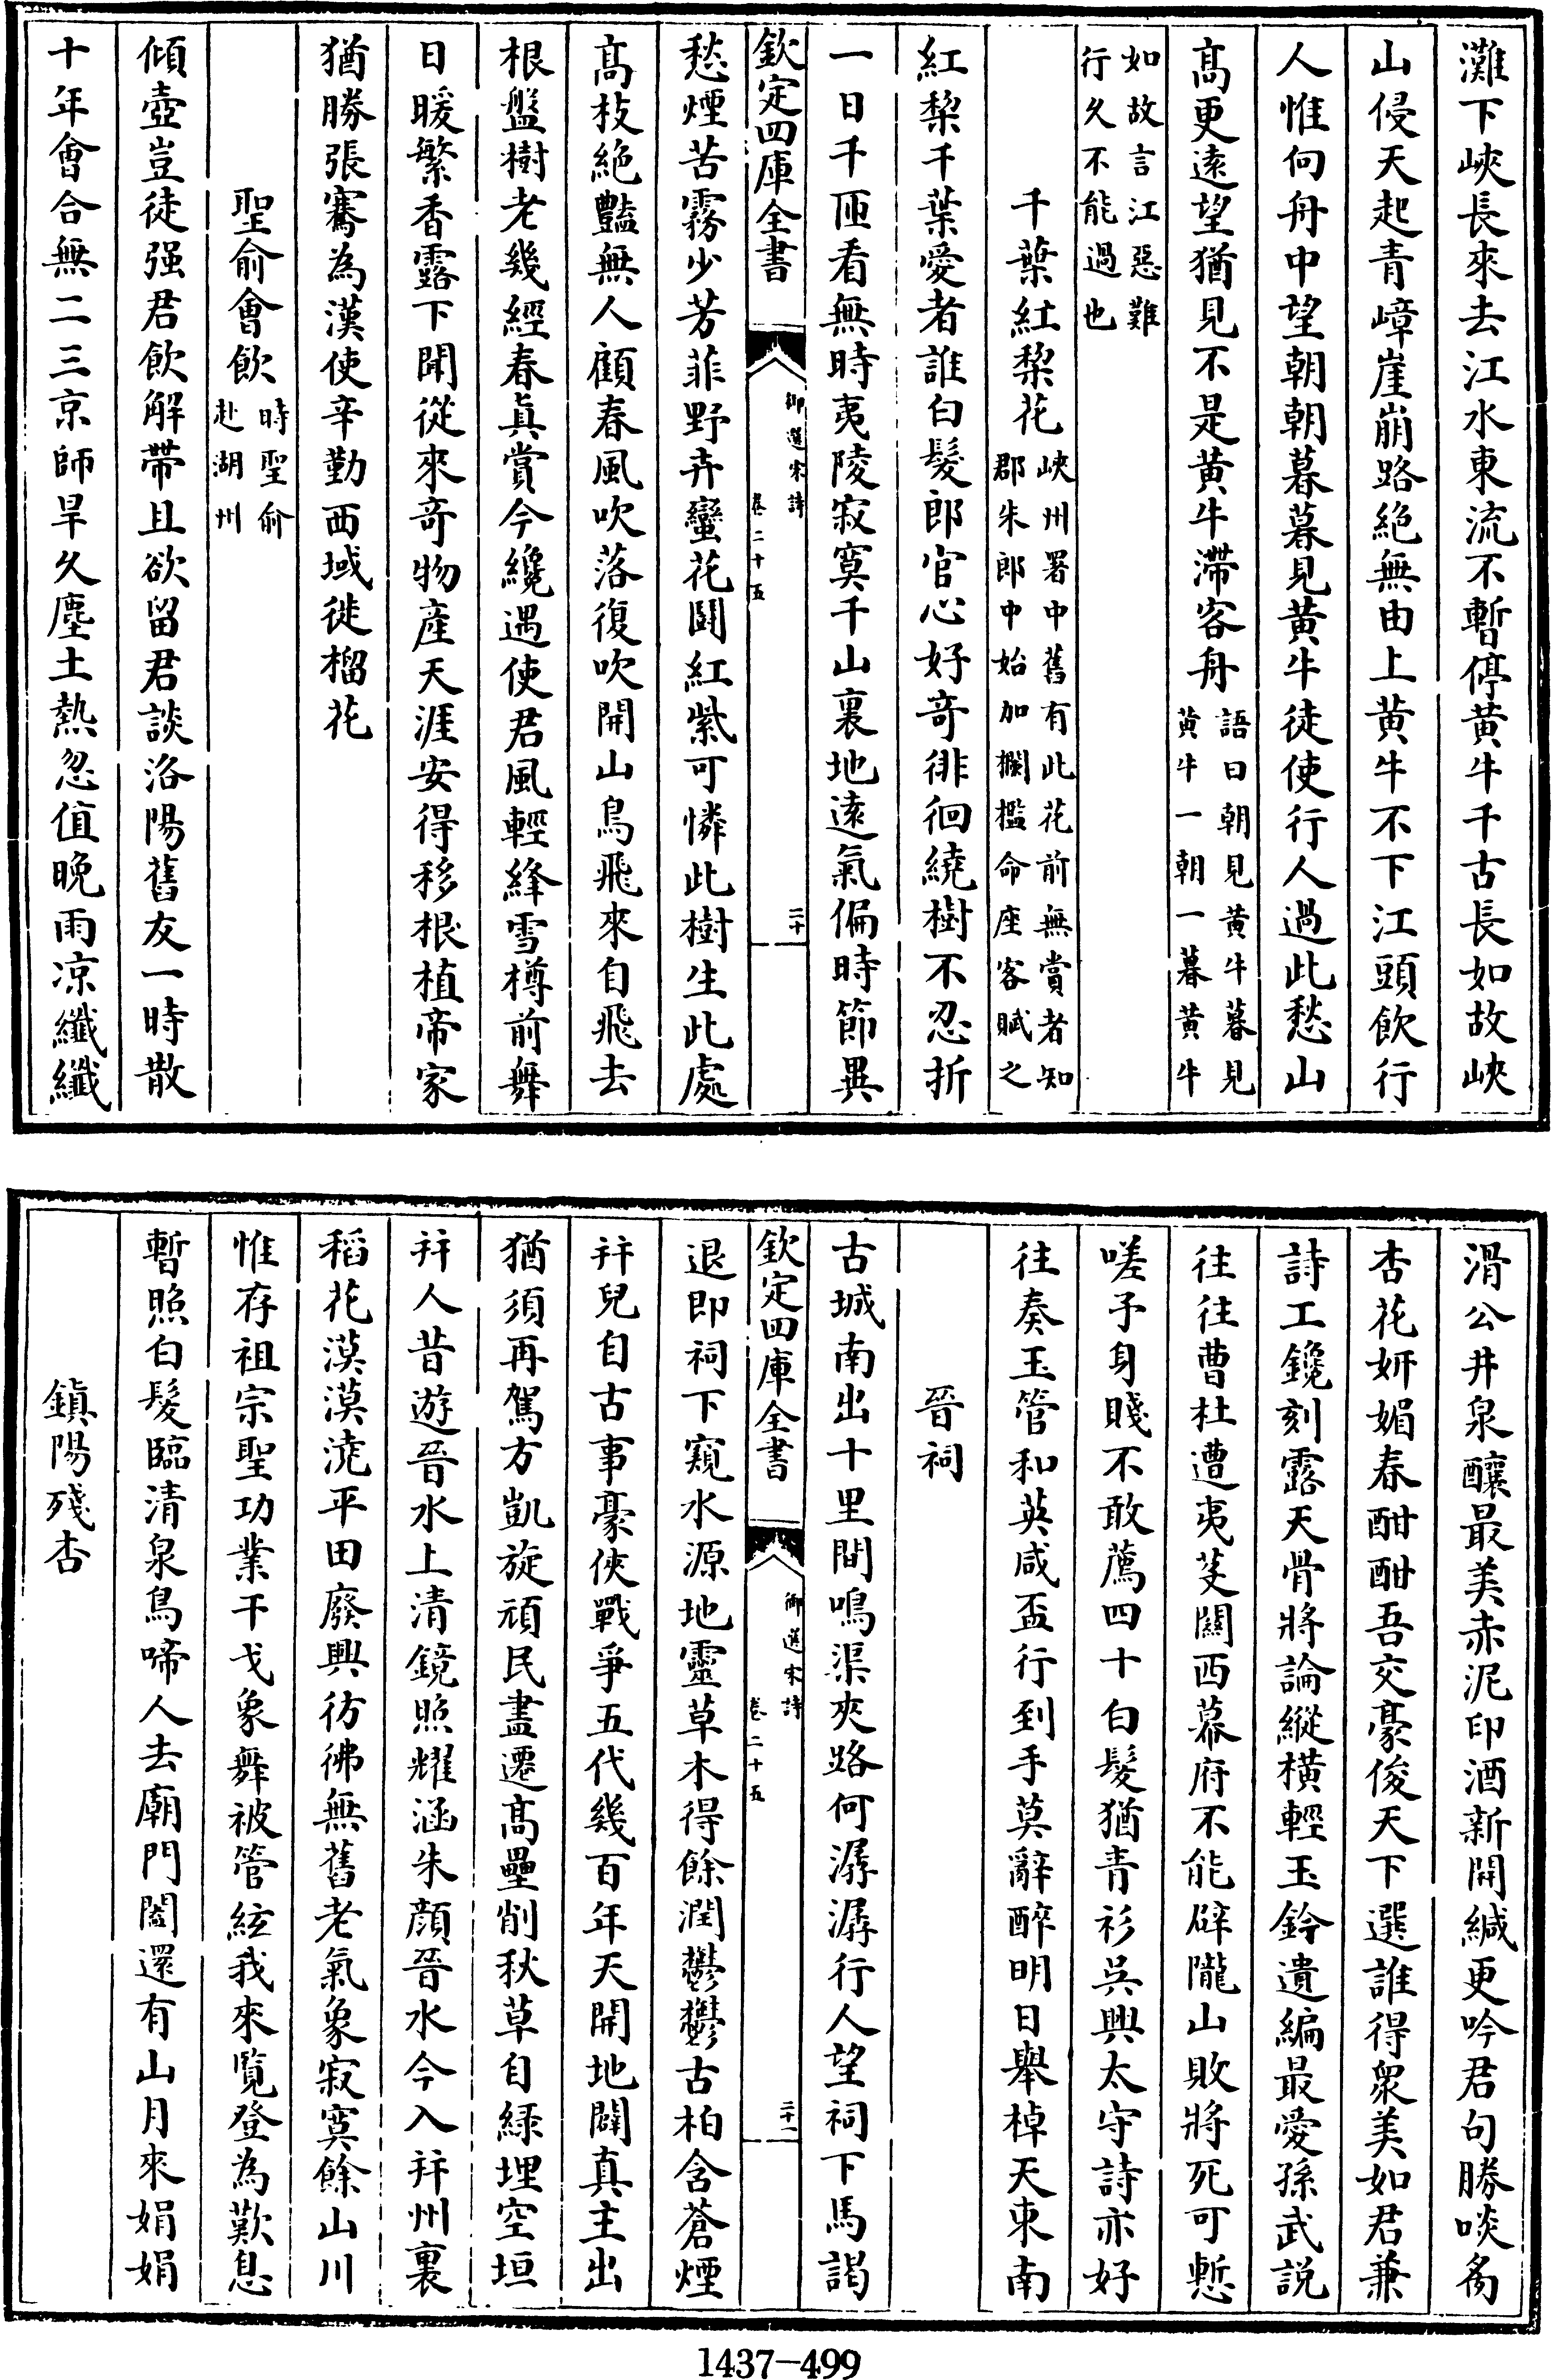 灘下峽長來去江水東流不暫停黄牛千古長如故峽
山侵天起青嶂崖崩路絶無由上黄牛不下江頭飲行
人惟向舟中望朝朝暮暮見黄牛徒使行人過此愁山
髙更逺望猶見不是黄牛滯客舟語曰朝見黄牛暮見黄牛一朝一暮黄牛
如故言江惡難行久不能過也
千葉紅棃花峽州署中舊有此花前無賞者知郡朱郎中始加欄檻命座客賦之
紅棃千葉愛者誰白髮郎官心好奇徘徊繞樹不忍折
一日千匝看無時夷陵寂寞千山裏地逺氣偏時節異
欽定四庫全書
御選宋詩
卷二十五
二十
愁煙苦霧少芳菲野卉蠻花鬬紅紫可憐此樹生此處
髙枝絶豔無人顧春風吹落復吹開山鳥飛來自飛去
根盤樹老幾經春真賞今纔遇使君風輕絳雪樽前舞
日暖繁香露下聞從來奇物產天涯安得移根植帝家
猶勝張騫為漢使辛勤西域徙榴花
聖俞會飲時聖俞赴湖州
傾壺豈徒强君飲解帶且欲留君談洛陽舊友一時散
十年會合無二三京師旱久塵土熱忽值晚雨凉纎纎
滑公井泉釀最美赤泥印酒新開緘更吟君句勝啖炙
杏花妍媚春酣酣吾交豪俊天下選誰得衆美如君兼
詩工鑱刻露天骨將論縱横輕玉鈐遺編最愛孫武説
往往曹杜遭夷芟關西幕府不能辟隴山敗將死可慙
嗟予身賤不敢薦四十白髮猶青衫吳興太守詩亦好
往奏玉管和英咸盃行到手莫辭醉明日舉棹天東南
晉祠
古城南出十里間鳴渠夾路何潺潺行人望祠下馬謁
欽定四庫全書
御選宋詩
卷二十五
二十一
退即祠下窺水源地靈草木得餘潤鬱鬱古柏含蒼煙
并兒自古事豪俠戰爭五代幾百年天開地闢真主出
猶須再駕方凱旋頑民盡遷髙壘削秋草自緑埋空垣
并人昔遊晉水上清鏡照耀涵朱顔晉水今入并州裏
稻花漠漠澆平田廢興彷彿無舊老氣象寂寞餘山川
惟存祖宗聖功業干戈象舞被管絃我來覽登為歎息
暫照白髮臨清泉鳥啼人去廟門闔還有山月來娟娟
鎮陽殘杏
1437-499